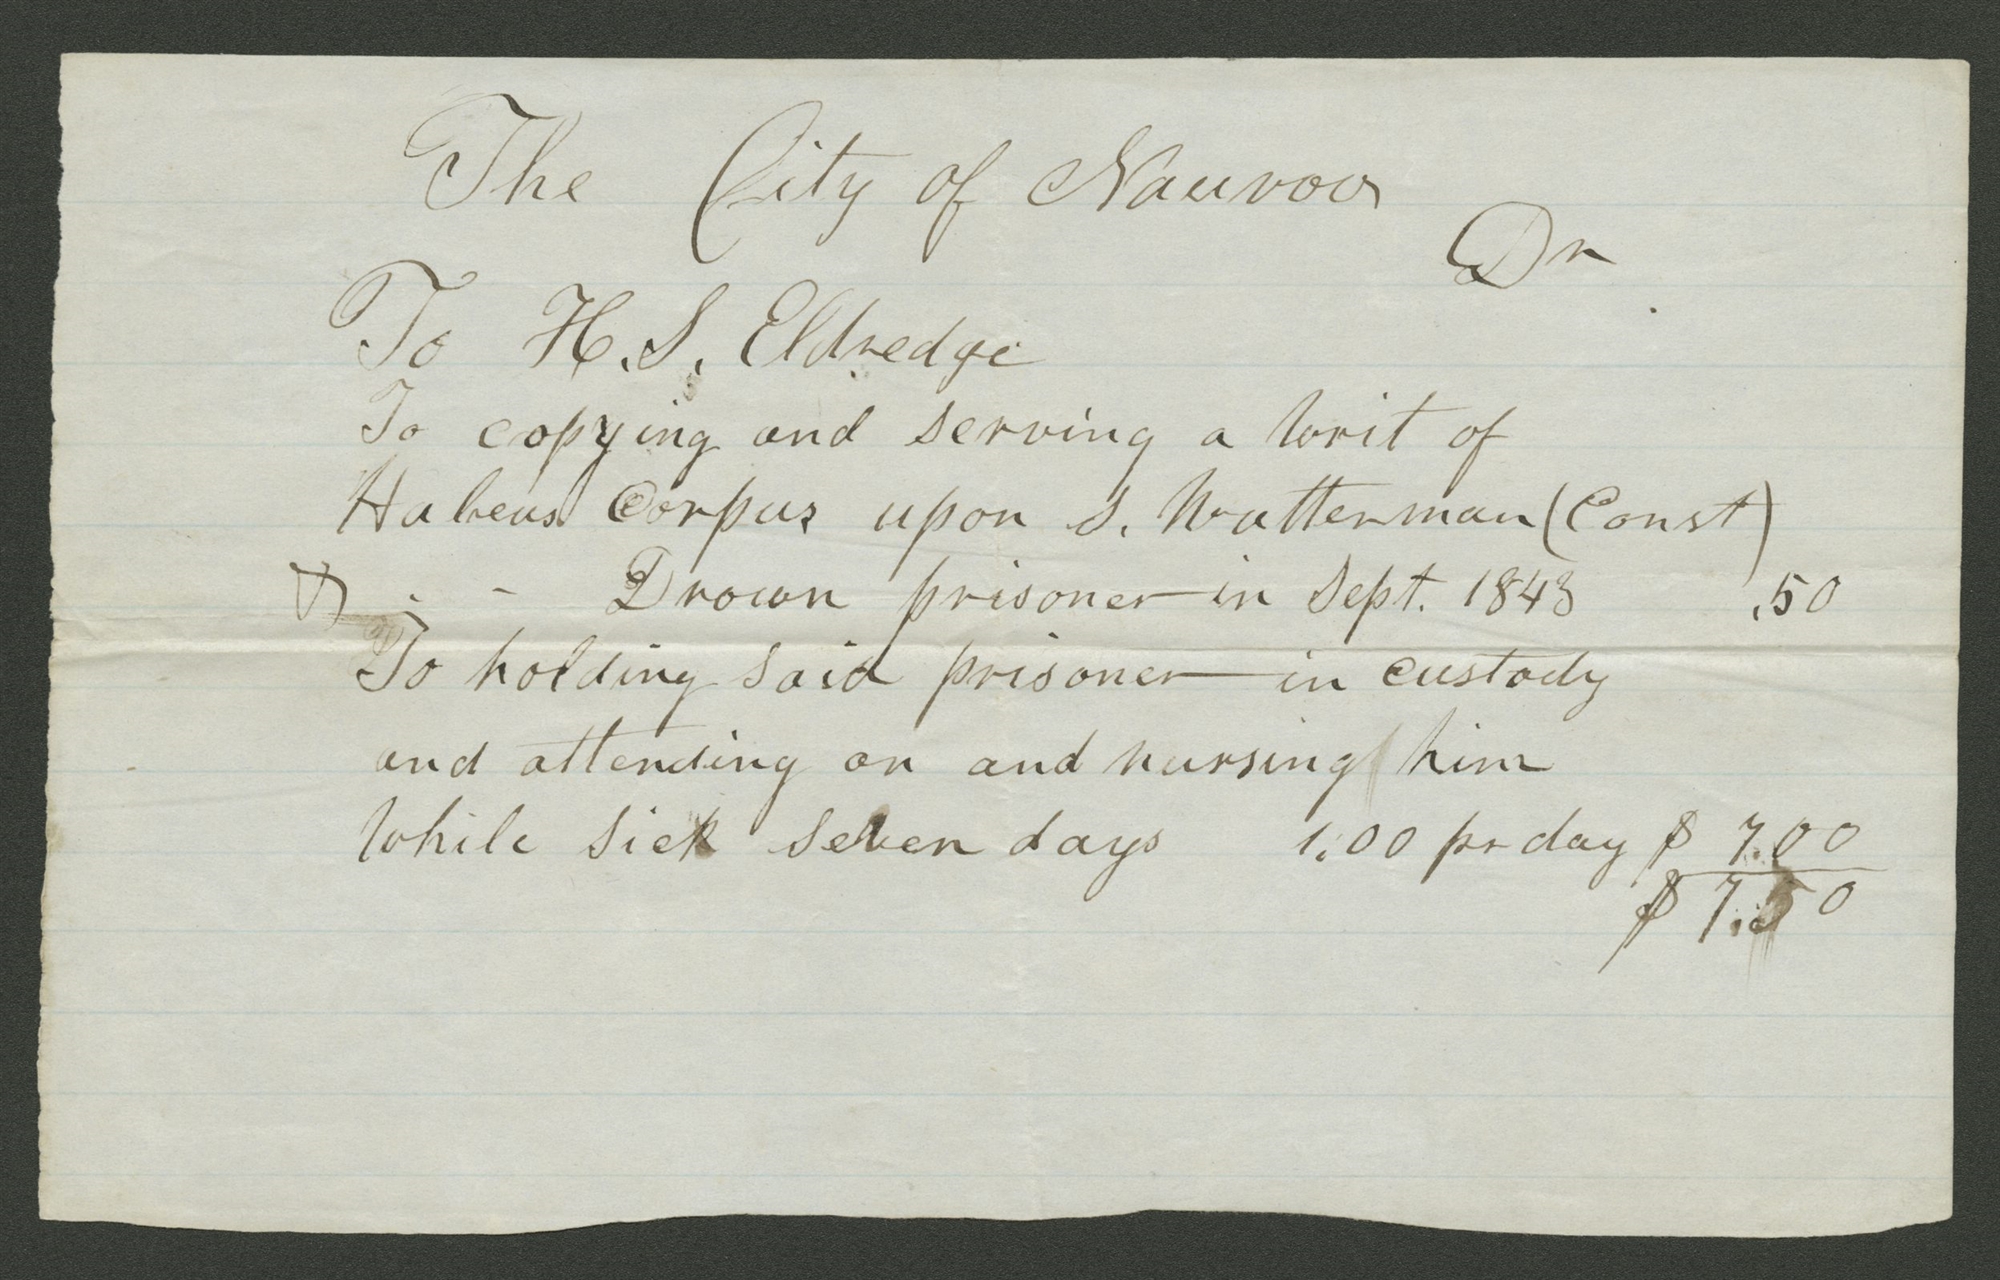 The City of Nauvoo
Dr
To H. S. Eldredge
To copying and serving a Writ of
Habeus Corpus upon S. Watterman (Const)
& - - Drown prisoner in Sept. 1843 .50
To holding said prisoner in custody
and attending on and nursing him
While sick seven days 1.00 pr day $ 7.00
$ 7.50